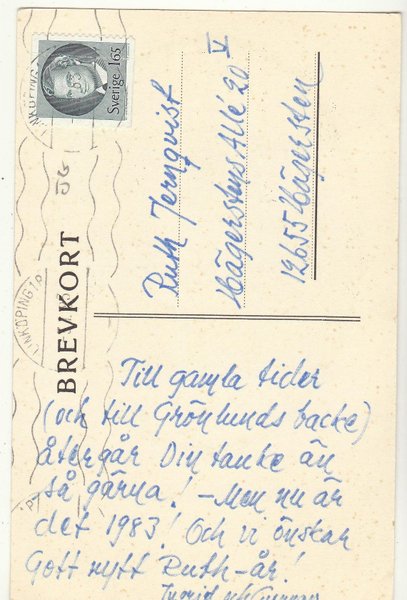 Sverige 1.65
LINKÖPING
LINKÖPING 1
BREVKORT
Ruth Jernqvist
Hägerstens Allé 20 V
12655 Hägersten
Till gamla tider
(och till Grönlunds backe)
återgår Din tanke än
så gärna! – Men nu är
det 1983! Och vi önskar
Gott nytt Ruth-år!
Ingrid och Gunnar